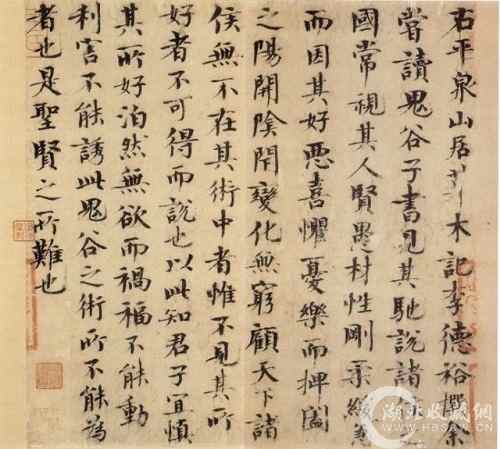 右平泉山居草木記李德裕撰余
嘗讀鬼谷子書見其馳說諸侯之
國常視其人賢愚材性剛柔緩急
而因其好惡喜懼憂樂而捭闔
之陽開陰閉變化無窮顧天下諸
侯無不在其術中者惟不見其所
好者不可得而說也以此知君子宜慎
其所好泊然無欲而禍福不能動
利害不能誘此鬼谷之術所不能為
者也是聖賢之所難也
湖北收藏网